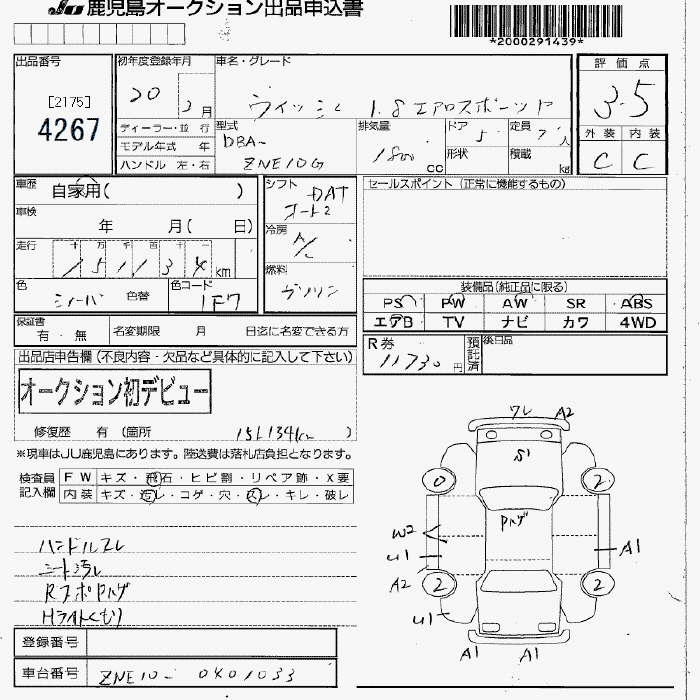 JU 鹿児島オークション出品申込書
*2000291439*
出品番号
[2175]
4267
初年度登録年月
20 2月
ディーラー・並 行
モデル年式 年
ハンドル 左・右
車名・グレード
ウィッシュ 1.8エアロスポーツP
型式
DBA-
ZNE10G
排気量
1800 cc
ドア
5
形状
定員
7 人
積載
kg
評 価 点
3.5
外 装 内 装
C C
車歴
自家用( )
車検
年 月( 日)
走行
十 万 千 百 十
151134 km
色
シルバー 色替
色コード
1F7
シフト
DAT
コート2
冷房
A/C
燃料
ガソリン
セールスポイント (正常に機能するもの)
装備品(純正品に限る)
PS PW AW SR ABS
エアB TV ナビ カワ 4WD
保証書
有 ・ 無
名変期限 月 日迄に名変できる方
R券
11730 円
預託済
後日品
出品店申告欄 (不良内容・欠品など具体的に記入して下さい)
オークション初デビュー
修復歴 有 (箇所 151134km )
※現車はJU鹿児島にあります。陸送費は落札店負担となります。
検査員記入欄
FW キズ・飛石・ヒビ割・リペア跡・X要
内装 キズ・汚レ・コゲ・穴・スレ・キレ・破レ
ハンドルスレ
シート汚レ
RスポPハゲ
Hライトくもり
ワレ A2
S1
2 2
Pハゲ
W2
U1 A1
A2 2 2
U1
A1 A1
登録番号
車台番号 ZNE10- 0401033